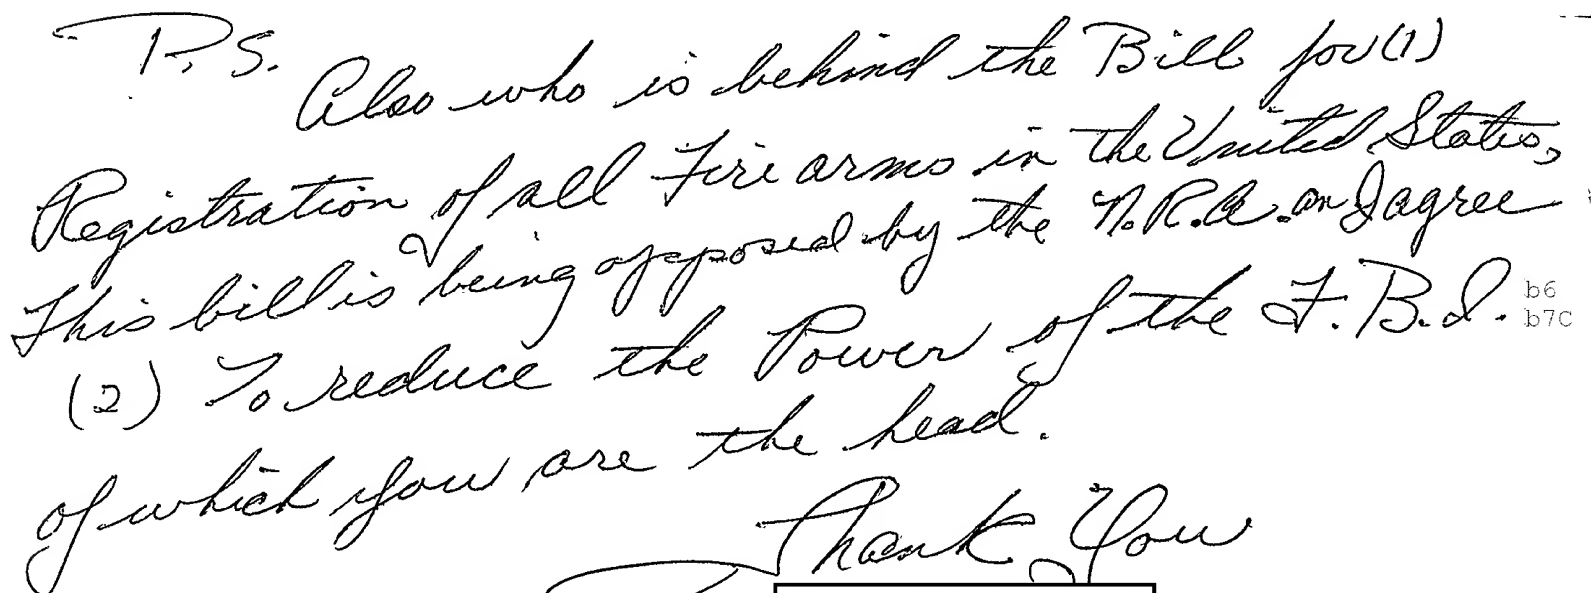 P.S.
Also who is behind the Bill for (1)
Registration of all Fire arms in the United States,
This bill is being opposed by the N.R.A. an I agree
(2) To reduce the Power of the F.B.I.
b6
b7C
of which you are the head.
Thank You